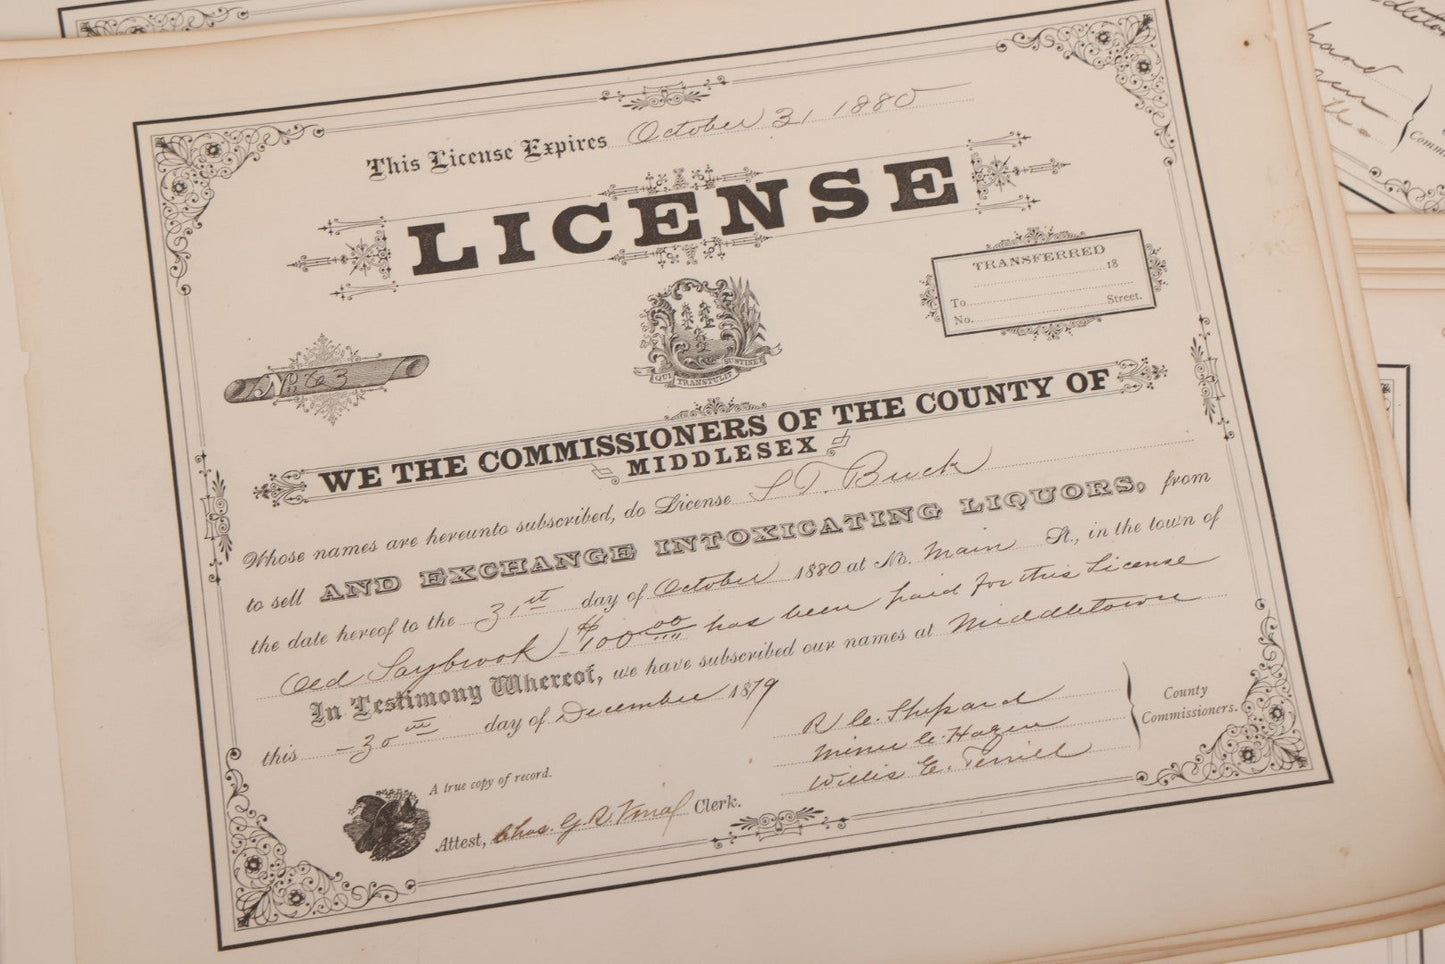 This License Expires October 31 1880
LICENSE
TRANSFERRED
18
To
Street.
No.
No. 63
QUI TRANSTULIT SUSTINET
WE THE COMMISSIONERS OF THE COUNTY OF
MIDDLESEX
Whose names are hereunto subscribed, do License S T. Buck
to sell AND EXCHANGE INTOXICATING LIQUORS, from
the date hereof to the 31st day of October 1880 at No. Main St., in the town of
Old Saybrook $100.00 has been paid for this License
In Testimony Whereof, we have subscribed our names at Middletown
this 30th day of December 1879
R. C. Shepard
Minor C. Hazen
Willis E. Terrill
County
Commissioners.
A true copy of record.
Attest, Chas. G. R. Vinal Clerk.